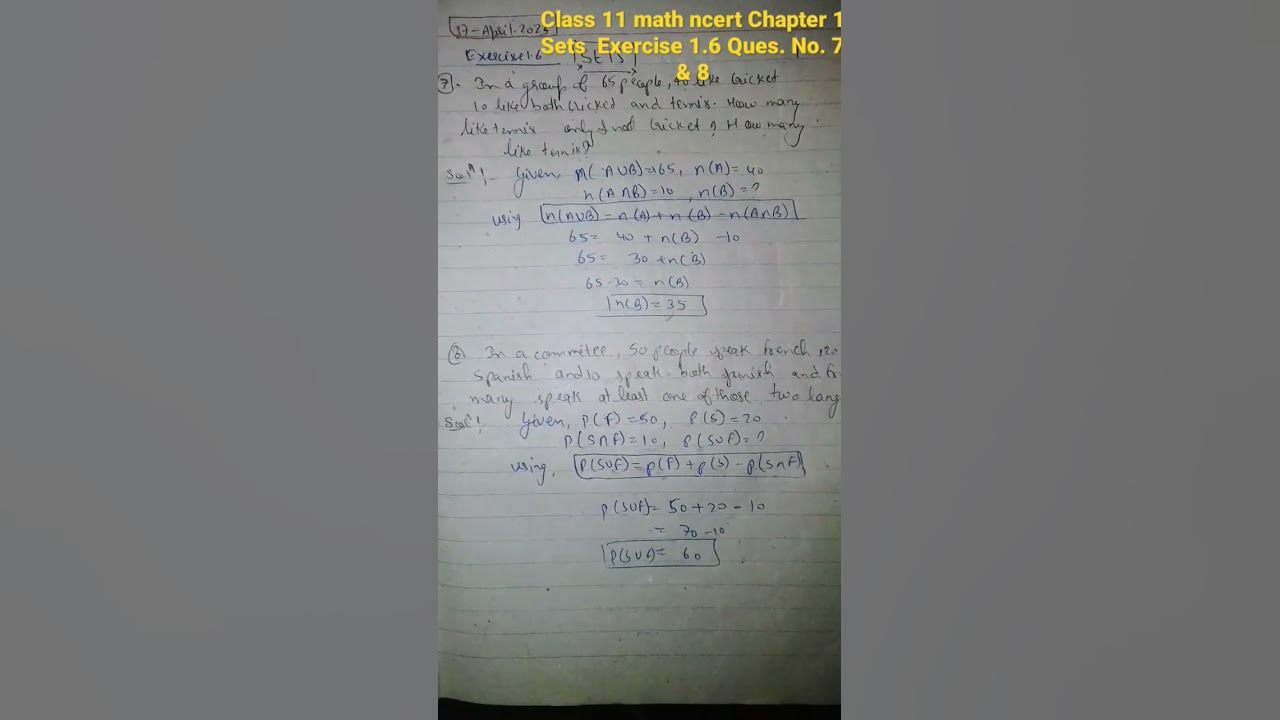 Class 11 math ncert Chapter 1
Sets Exercise 1.6 Ques. No. 7
& 8
17-April-2023
Exercise 1.6 [SETS]
7. In a group of 65 people, 40 like cricket
10 like both cricket and tennis. How many
like tennis only & not cricket? How many
like tennis?
Soln:- Given n(A∪B)=65, n(A)=40
n(A∩B)=10, n(B)=?
using n(A∪B)=n(A)+n(B)-n(A∩B)
65= 40+n(B) -10
65= 30+n(B)
65-30=n(B)
n(B)=35
In a commitee, 50 people speak french, 20
spanish and 10 speak both and fr
many speak at least one of those two lang
Soln: Given, P(F)=50, P(S)=20
P(S∩F)=10, P(S∪F)=?
using, P(S∪F)=P(F)+P(S)-P(S∩F)
P(S∪F)=50+20-10
= 70-10
P(S∪F)= 60